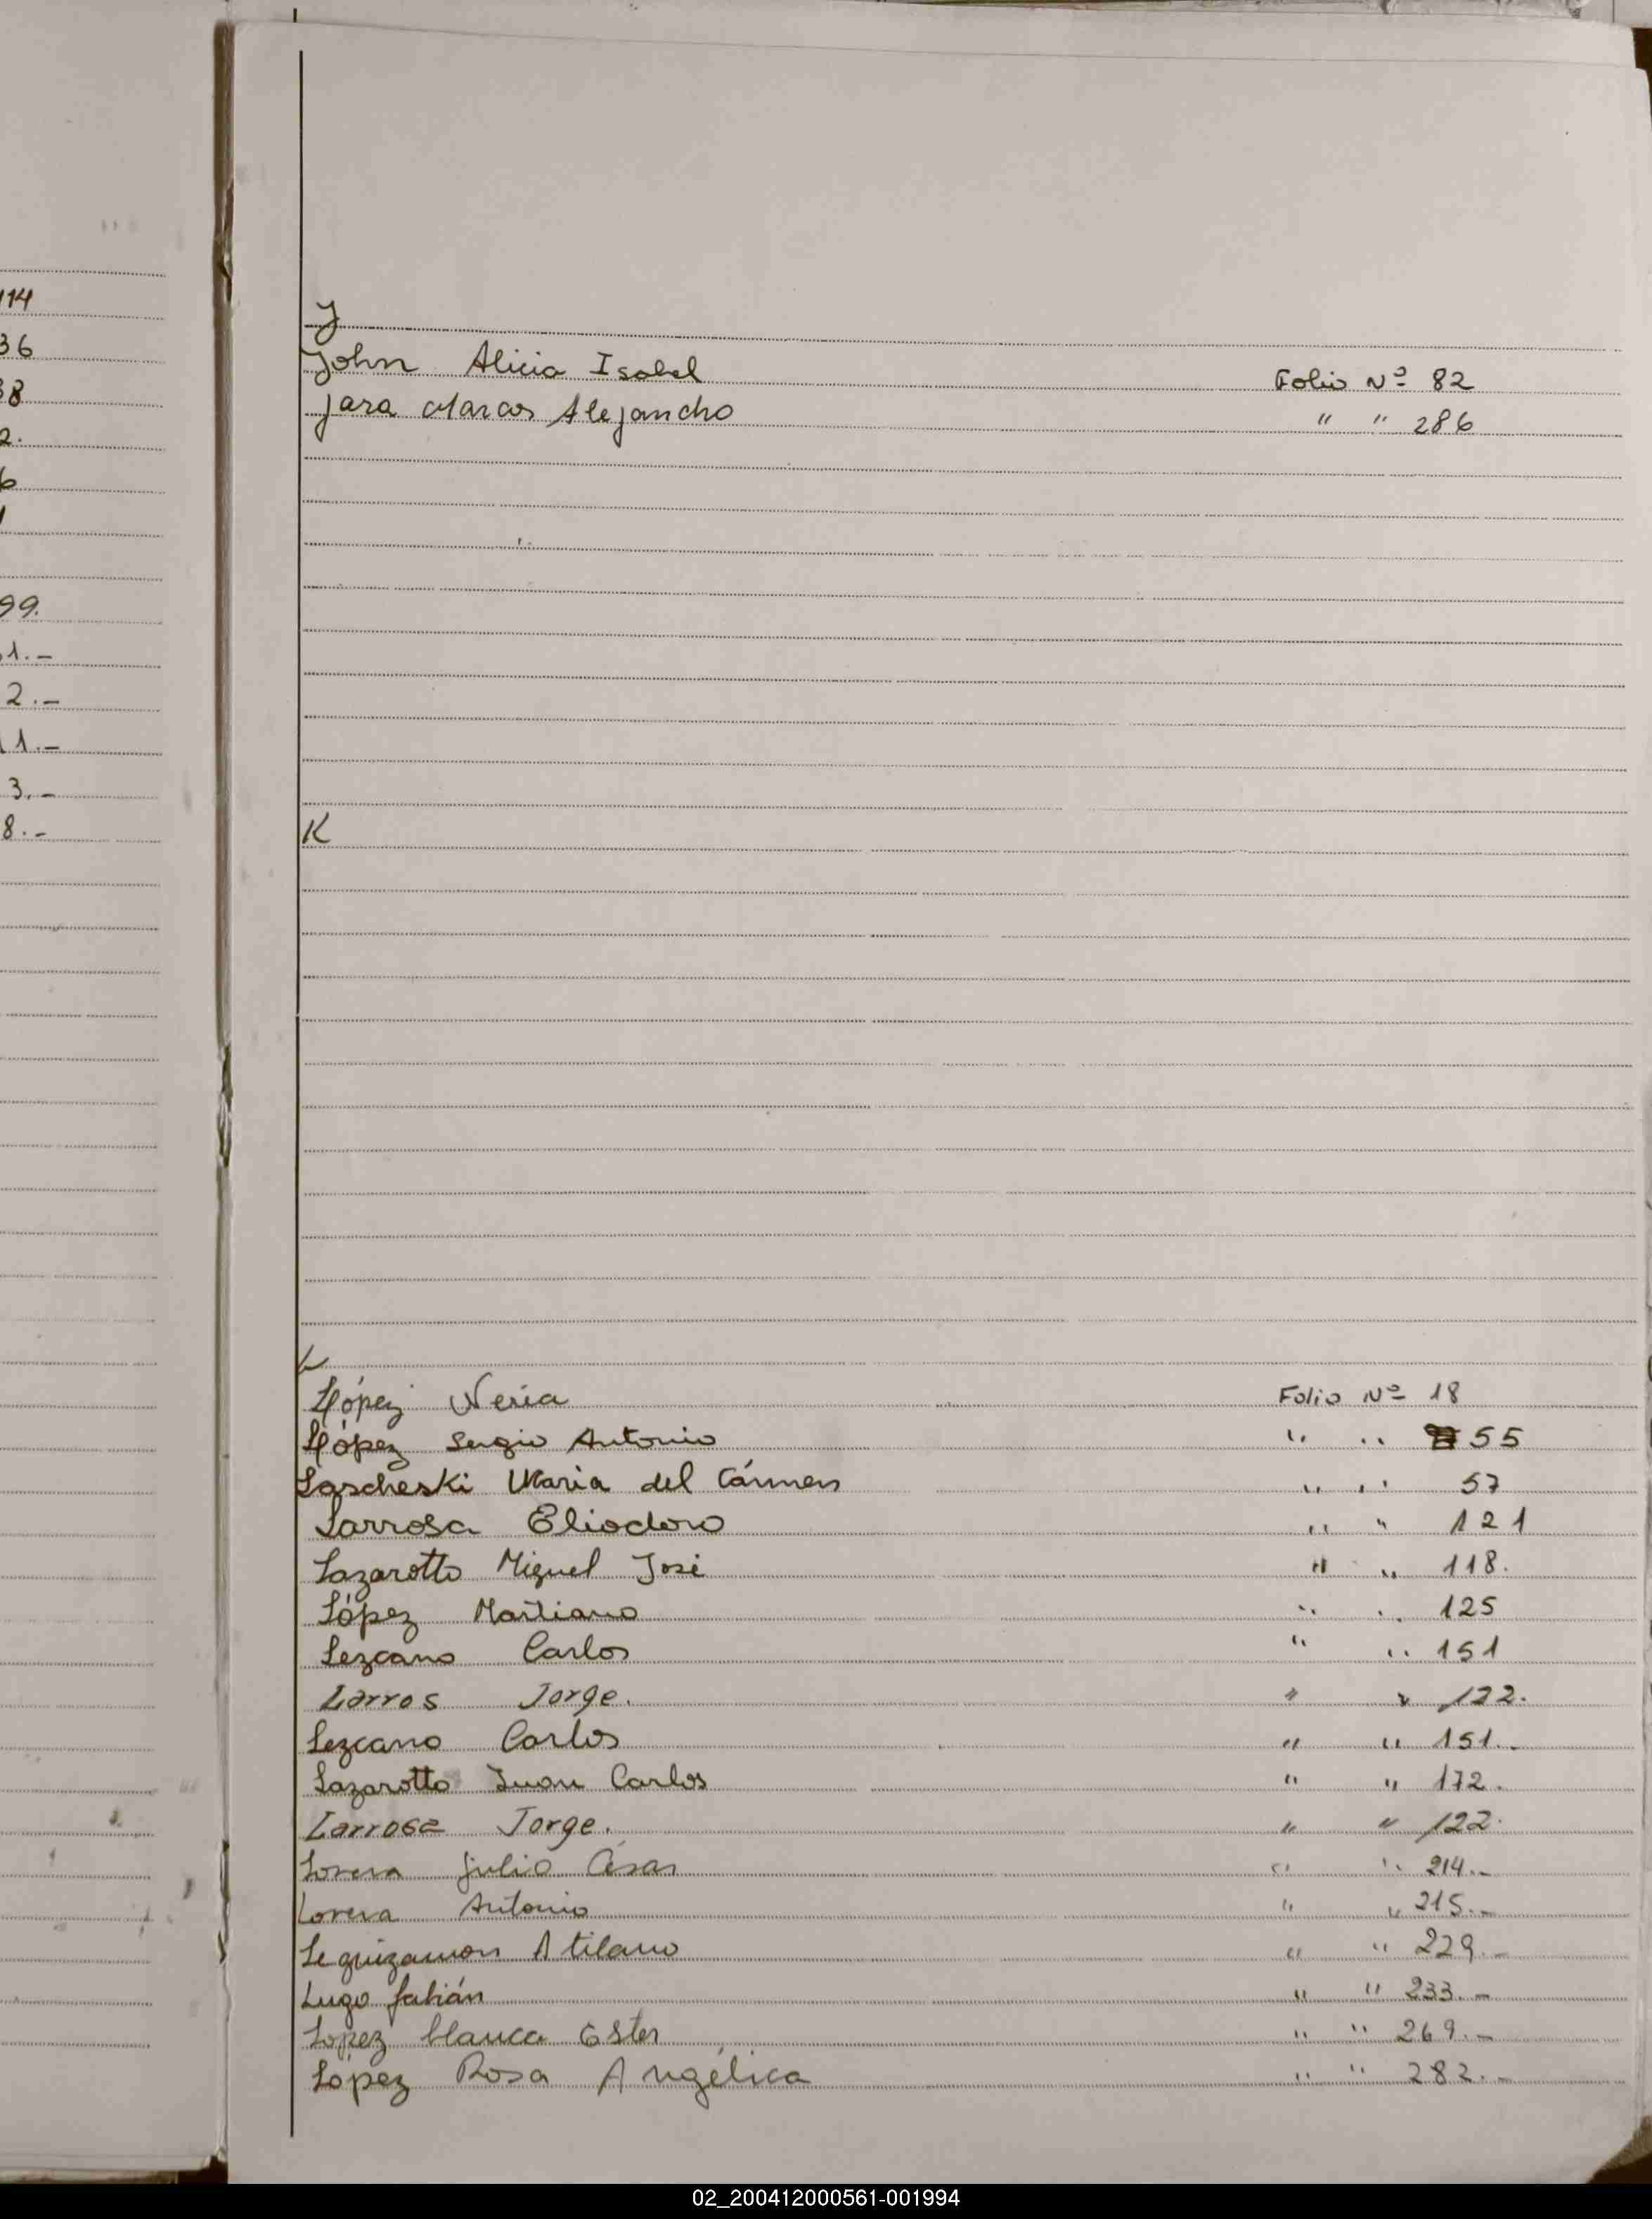 114
36
38
2.
6
1
99.
1.-
2.-
11.-
3.-
8.-
J
John Alicia Isabel Folio Nº 82
Jara Marcos Alejandro " " 286
K
L
López Neria Folio Nº 18
López Sergio Antonio " " 55
Lascheski Maria del Cármen " " 57
Larrosa Eliodoro " " 121
Lazarotto Miguel José " " 118.
López Martiano " " 125
Lezcano Carlos " " 151
Larros Jorge. " " 122.
Lezcano Carlos " " 151.-
Lazarotto Juan Carlos " " 172.
Larrosa Jorge. " " 122.
Lovera Julio César " " 214.-
Lovera Antonio " " 215.-
Leguizamon Atilano " " 229.-
Lugo fabián " " 233.-
Lopez blanca Ester " " 269.-
López Rosa Angélica " " 282.-
02_200412000561-001994